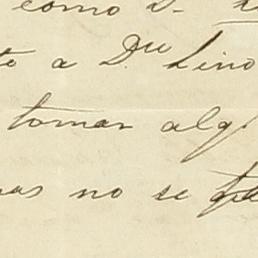 como D.
to a D.ⁿ Lino
tomar alg
mas no se